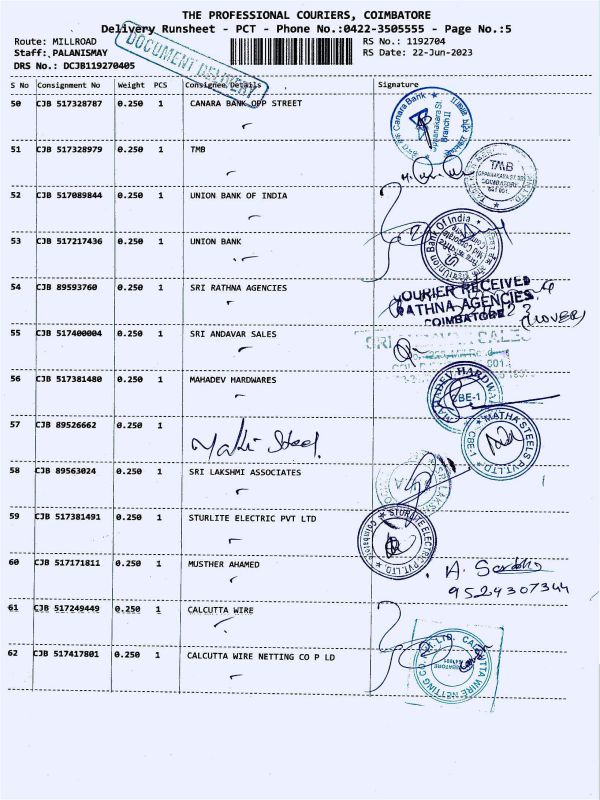 THE PROFESSIONAL COURIERS, COIMBATORE
Delivery Runsheet - PCT - Phone No.:0422-3505555 - Page No.:5
Route: MILLROAD RS No.: 1192704
Staff: PALANISMAY RS Date: 22-Jun-2023
DRS No.: DCJB119270405
DOCUMENT DELIVERY
S No Consignment No Weight PCS Consignee Details Signature
50 CJB 517328787 0.250 1 CANARA BANK OPP STREET
Canara Bank
Branch II
51 CJB 517328979 0.250 1 TMB
TMB
COIMBATORE
52 CJB 517089844 0.250 1 UNION BANK OF INDIA
53 CJB 517217436 0.250 1 UNION BANK
Union Bank Of India
54 CJB 89593760 0.250 1 SRI RATHNA AGENCIES
COURIER RECEIVED
RATHNA AGENCIES
COIMBATORE
55 CJB 517400004 0.250 1 SRI ANDAVAR SALES
SRI SALES
56 CJB 517381480 0.250 1 MAHADEV HARDWARES
MAHADEV HARDWARES
CBE-1
57 CJB 89526662 0.250 1 Steel.
MATHA STEELS PVT.LTD
CBE-1
58 CJB 89563024 0.250 1 SRI LAKSHMI ASSOCIATES
59 CJB 517381491 0.250 1 STURLITE ELECTRIC PVT LTD
STURLITE ELECTRIC PVT.LTD.
Coimbatore
60 CJB 517171811 0.250 1 MUSTHER AHAMED
9524307344
61 CJB 517249449 0.250 1 CALCUTTA WIRE
62 CJB 517417801 0.250 1 CALCUTTA WIRE NETTING CO P LD
CALCUTTA WIRE NETTING CO P. LTD.